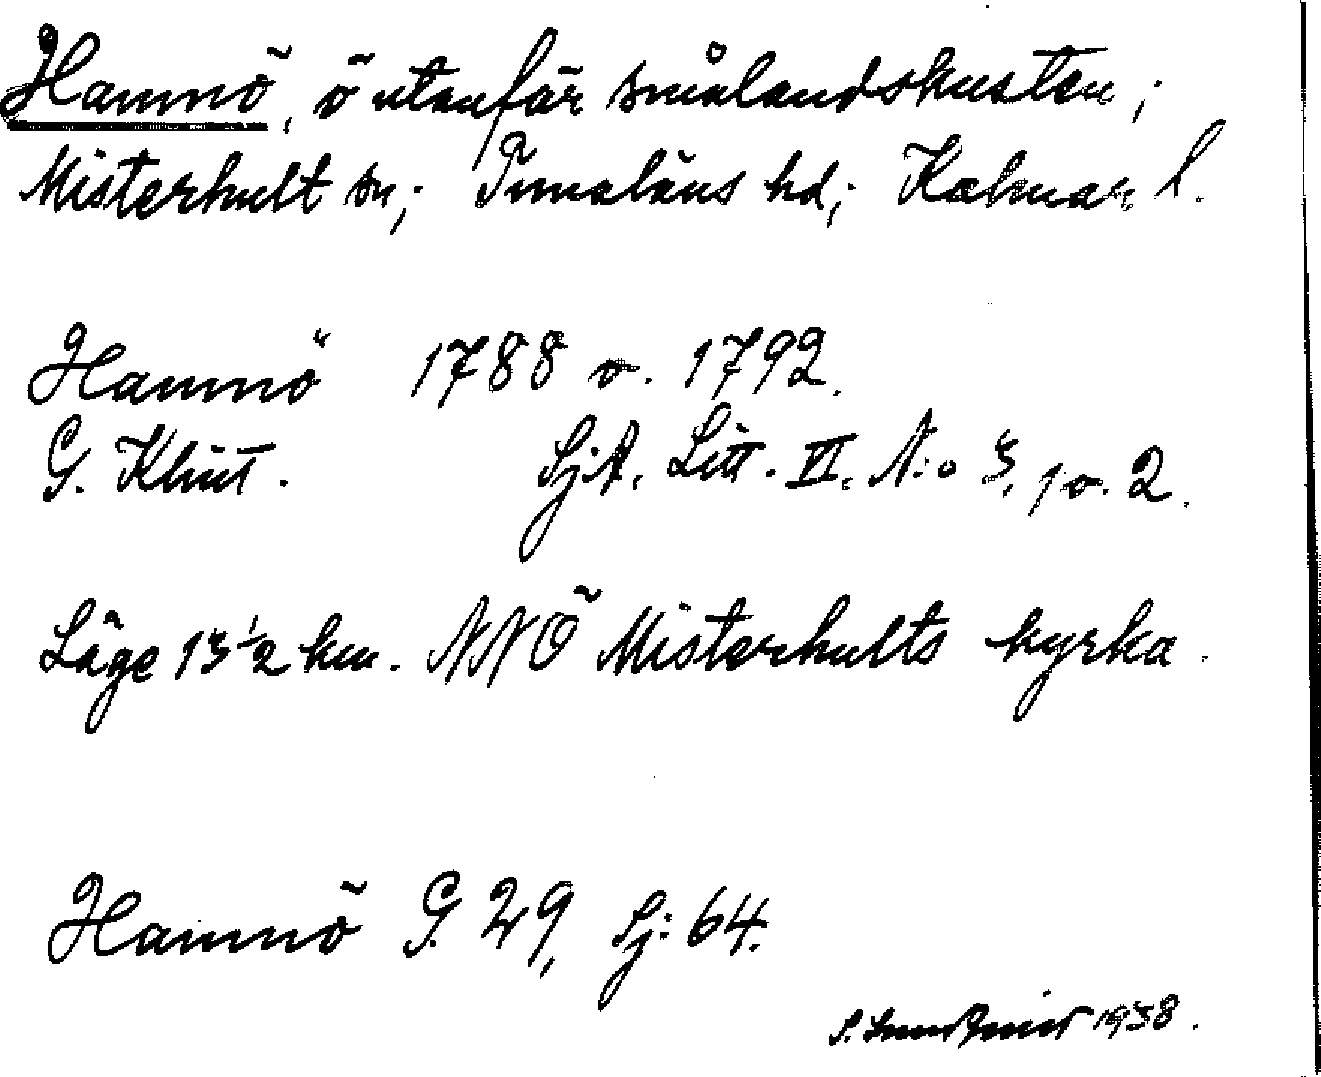 Hamnö, ö utanför smålandskusten;
Misterhult sn; Tunaläns hd; Kalmar l.
Hamnö 1788 o. 1792.
G. Klint. SjA. Litt. VI. N:o 3, 1 o. 2.
Läge 13 ½ km. NNÖ Misterhults kyrka.
Hamnö G. 29, Sj: 64.
S. 1938.